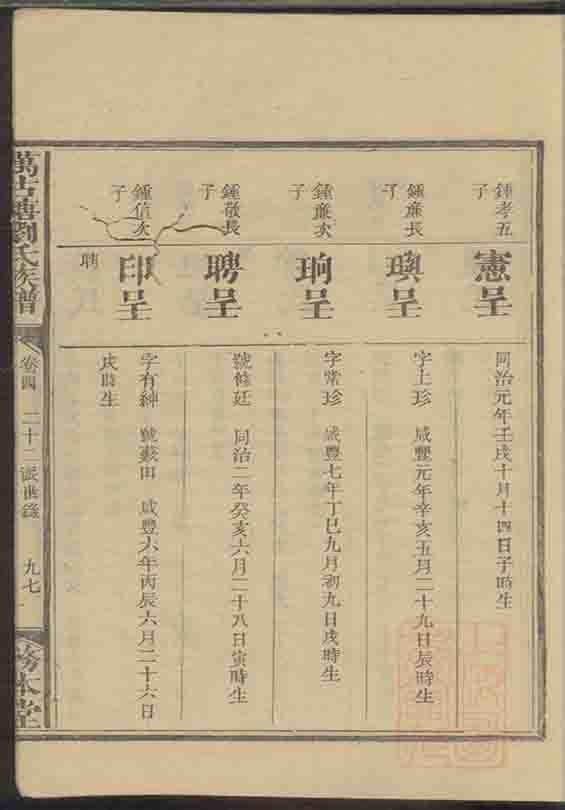 鍾孝五
子
憲呈
同治元年壬戌十月十四日子時生
鍾廉長
子
璵呈
字上珍 咸豐元年辛亥五月二十九日辰時生
鍾廉次
子
珦呈
字常珍 咸豐七年丁巳九月初九日戌時生
鍾敬長
子
聘呈
號修廷 同治二年癸亥六月二十八日寅時生
鍾信次
子
印呈
聘
字有紳 號藝田 咸豐六年丙辰六月二十六日
戌時生
萬古塘劉氏族譜
卷四
二十二派世錄
九七
務本堂